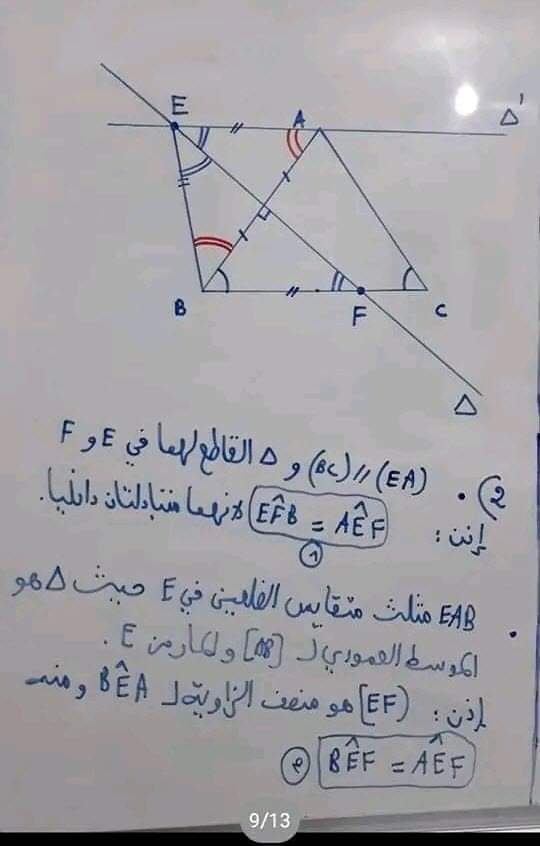 E
A
Δ'
B
F
C
Δ
2) • (EA) // (BC) و Δ القاطع لهما في E و F
إذن : AÊF = EF̂B لأنهما متبادلتان داخليا.
1
• EAB مثلث متقايس الضلعين في E حيث Δ هو
الموسط العمودي لـ [AB] والمار من E .
إذن : [EF) هو منصف الزاوية لـ BÊA ومنه
BÊF = AÊF 2
9/13